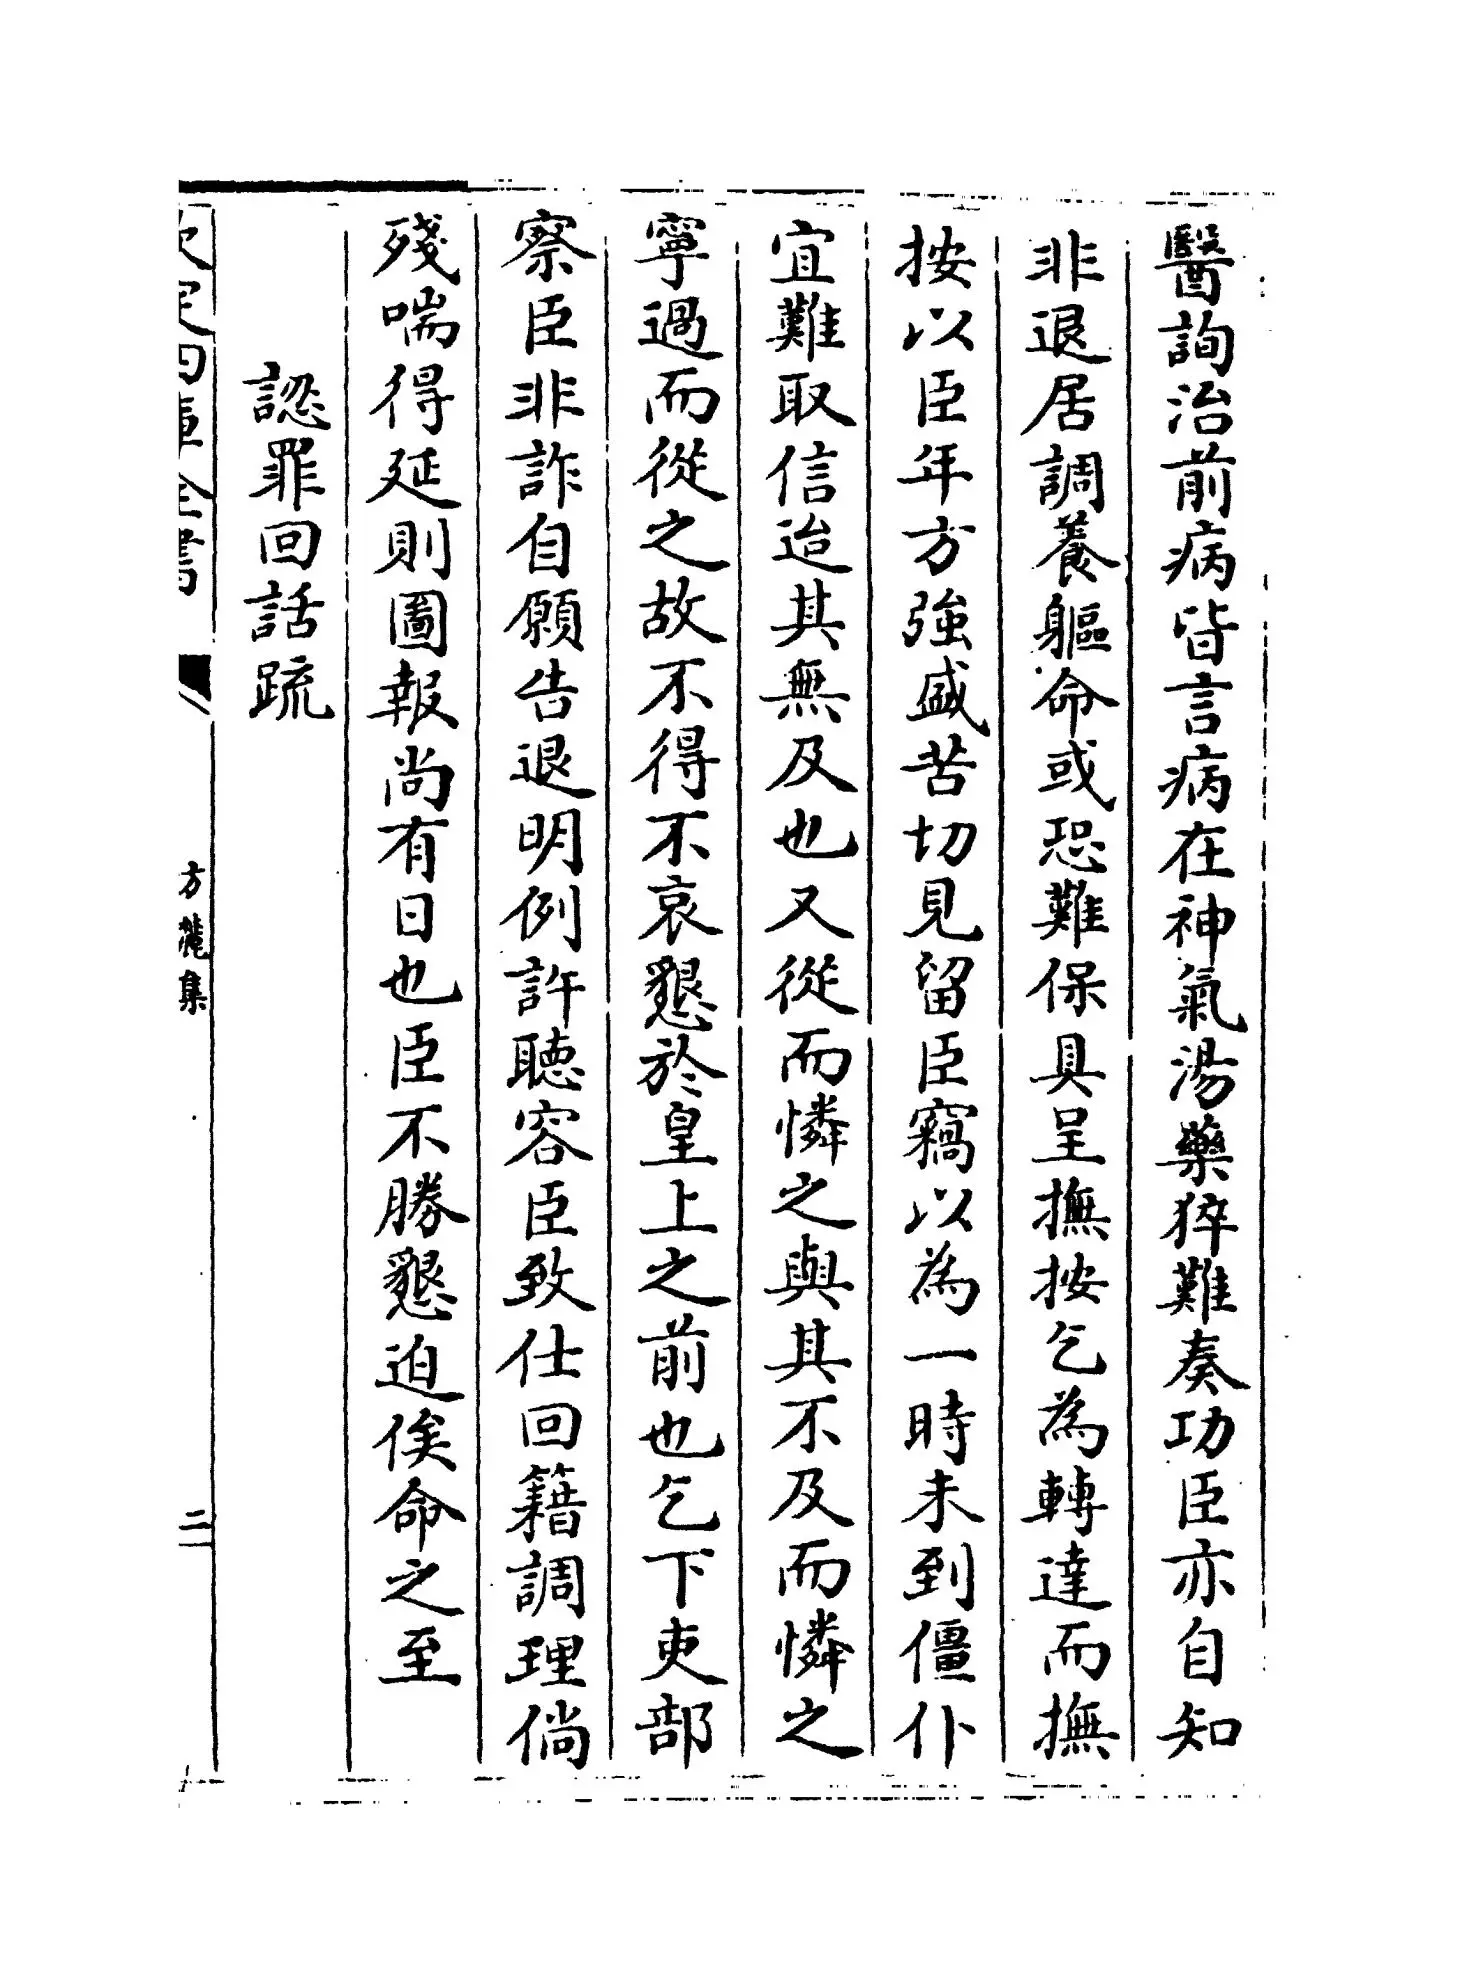 醫詢治前病皆言病在神氣湯藥猝難奏功臣亦自知
非退居調養軀命或恐難保具呈撫按乞為轉達而撫
按以臣年方強盛苦切見留臣竊以為一時未到僵仆
宜難取信迨其無及也又從而憐之與其不及而憐之
寧過而從之故不得不哀懇於皇上之前也乞下吏部
察臣非詐自願告退明例許聽容臣致仕回籍調理倘
殘喘得延則圖報尚有日也臣不勝懇迫俟命之至
認罪回話疏
欽定四庫全書
方麓集
二